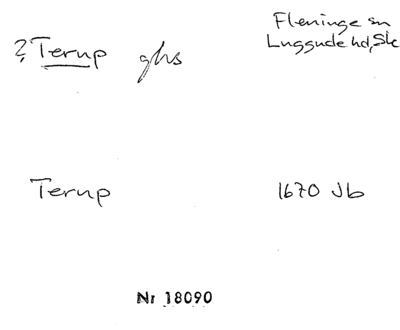 Fleninge sn
? Terup ghs Luggude hd, Sk
Terup 1670 Jb
Nr 18090